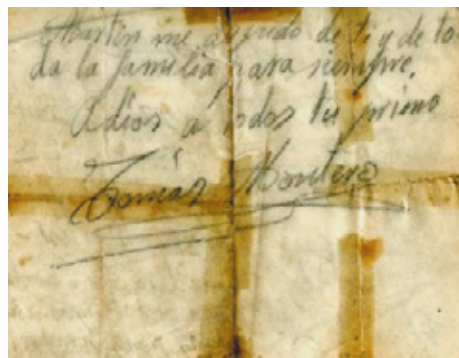 Martín me acuerdo de ti y de to
da la familia para siempre,
Adios a todos tu primo
Tomás Montero